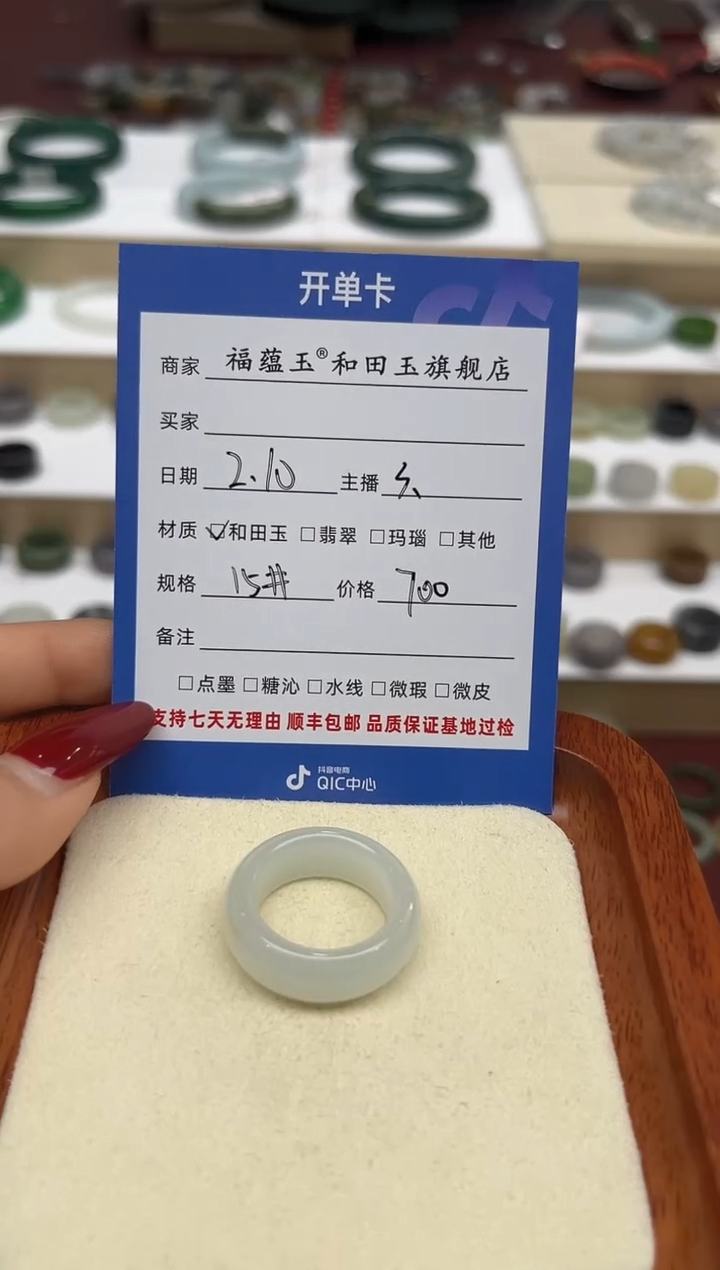 开单卡
商家 福蕴玉®和田玉旗舰店
买家
日期 2.10 主播
材质 ☑和田玉 □翡翠 □玛瑙 □其他
规格 15# 价格 700
备注
□点墨 □糖沁 □水线 □微瑕 □微皮
支持七天无理由 顺丰包邮 品质保证基地过检
抖音电商
QIC中心